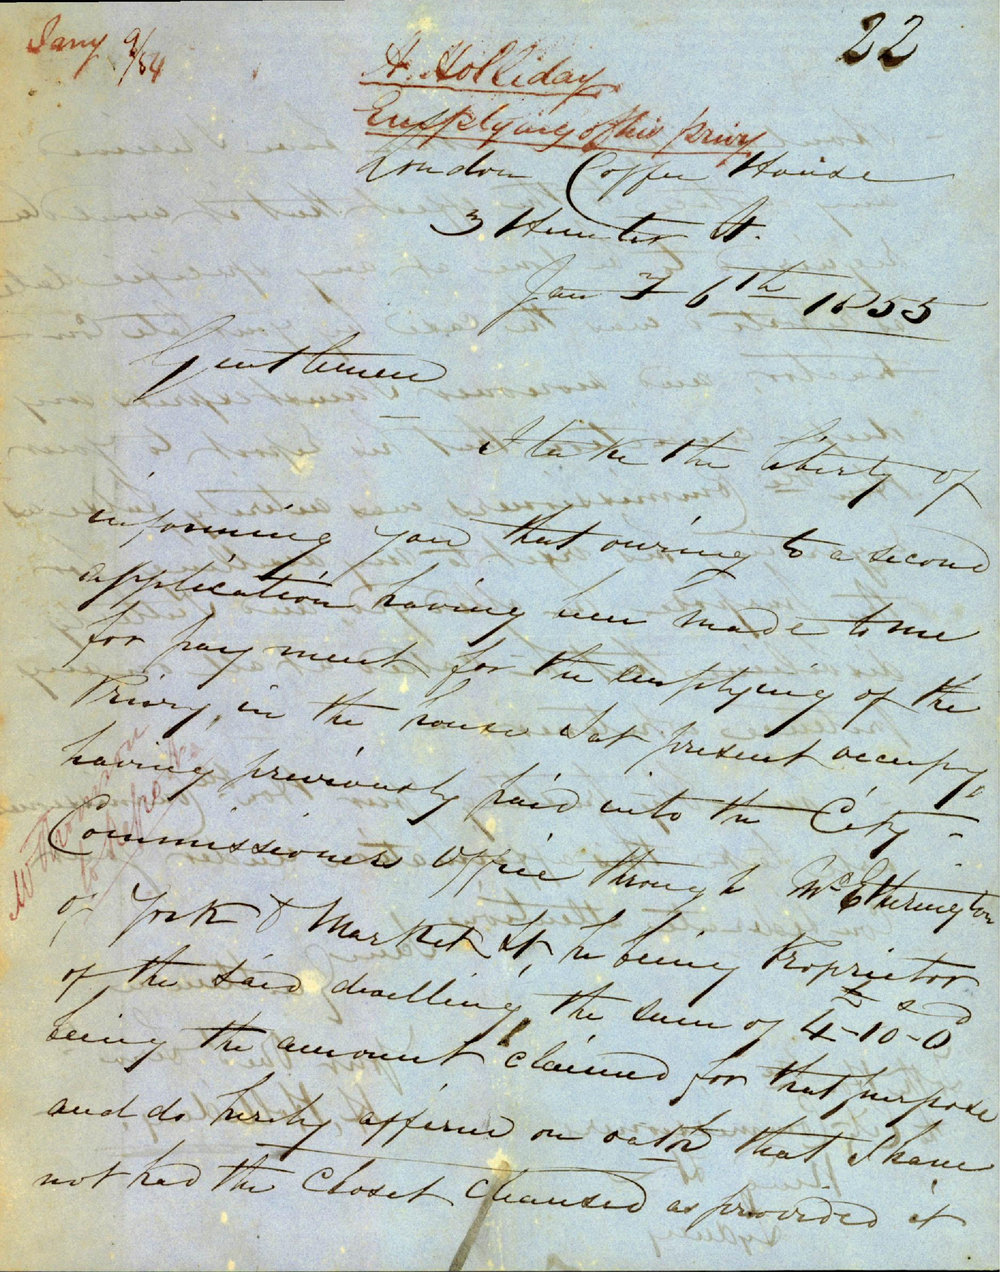 Jany 9/54
22
H. Holliday
Emptying of his privy
London Coffee House
3 Hunter St.
Jan 6th 1855
Gentlemen
I take the liberty of
informing you that owing to a second
application having been made to me
for payment for the emptying of the
Privy, in the house I at present occupy,
having previously paid into the City
Commissioners Office through Mr Etherington
of York & Market St he being Proprietor
of the said dwelling, the sum of £4-10s-0d
being the amount claimed for that purpose
and do hereby affirm on oath that I have
not had the Closet cleansed as provided it
to Report